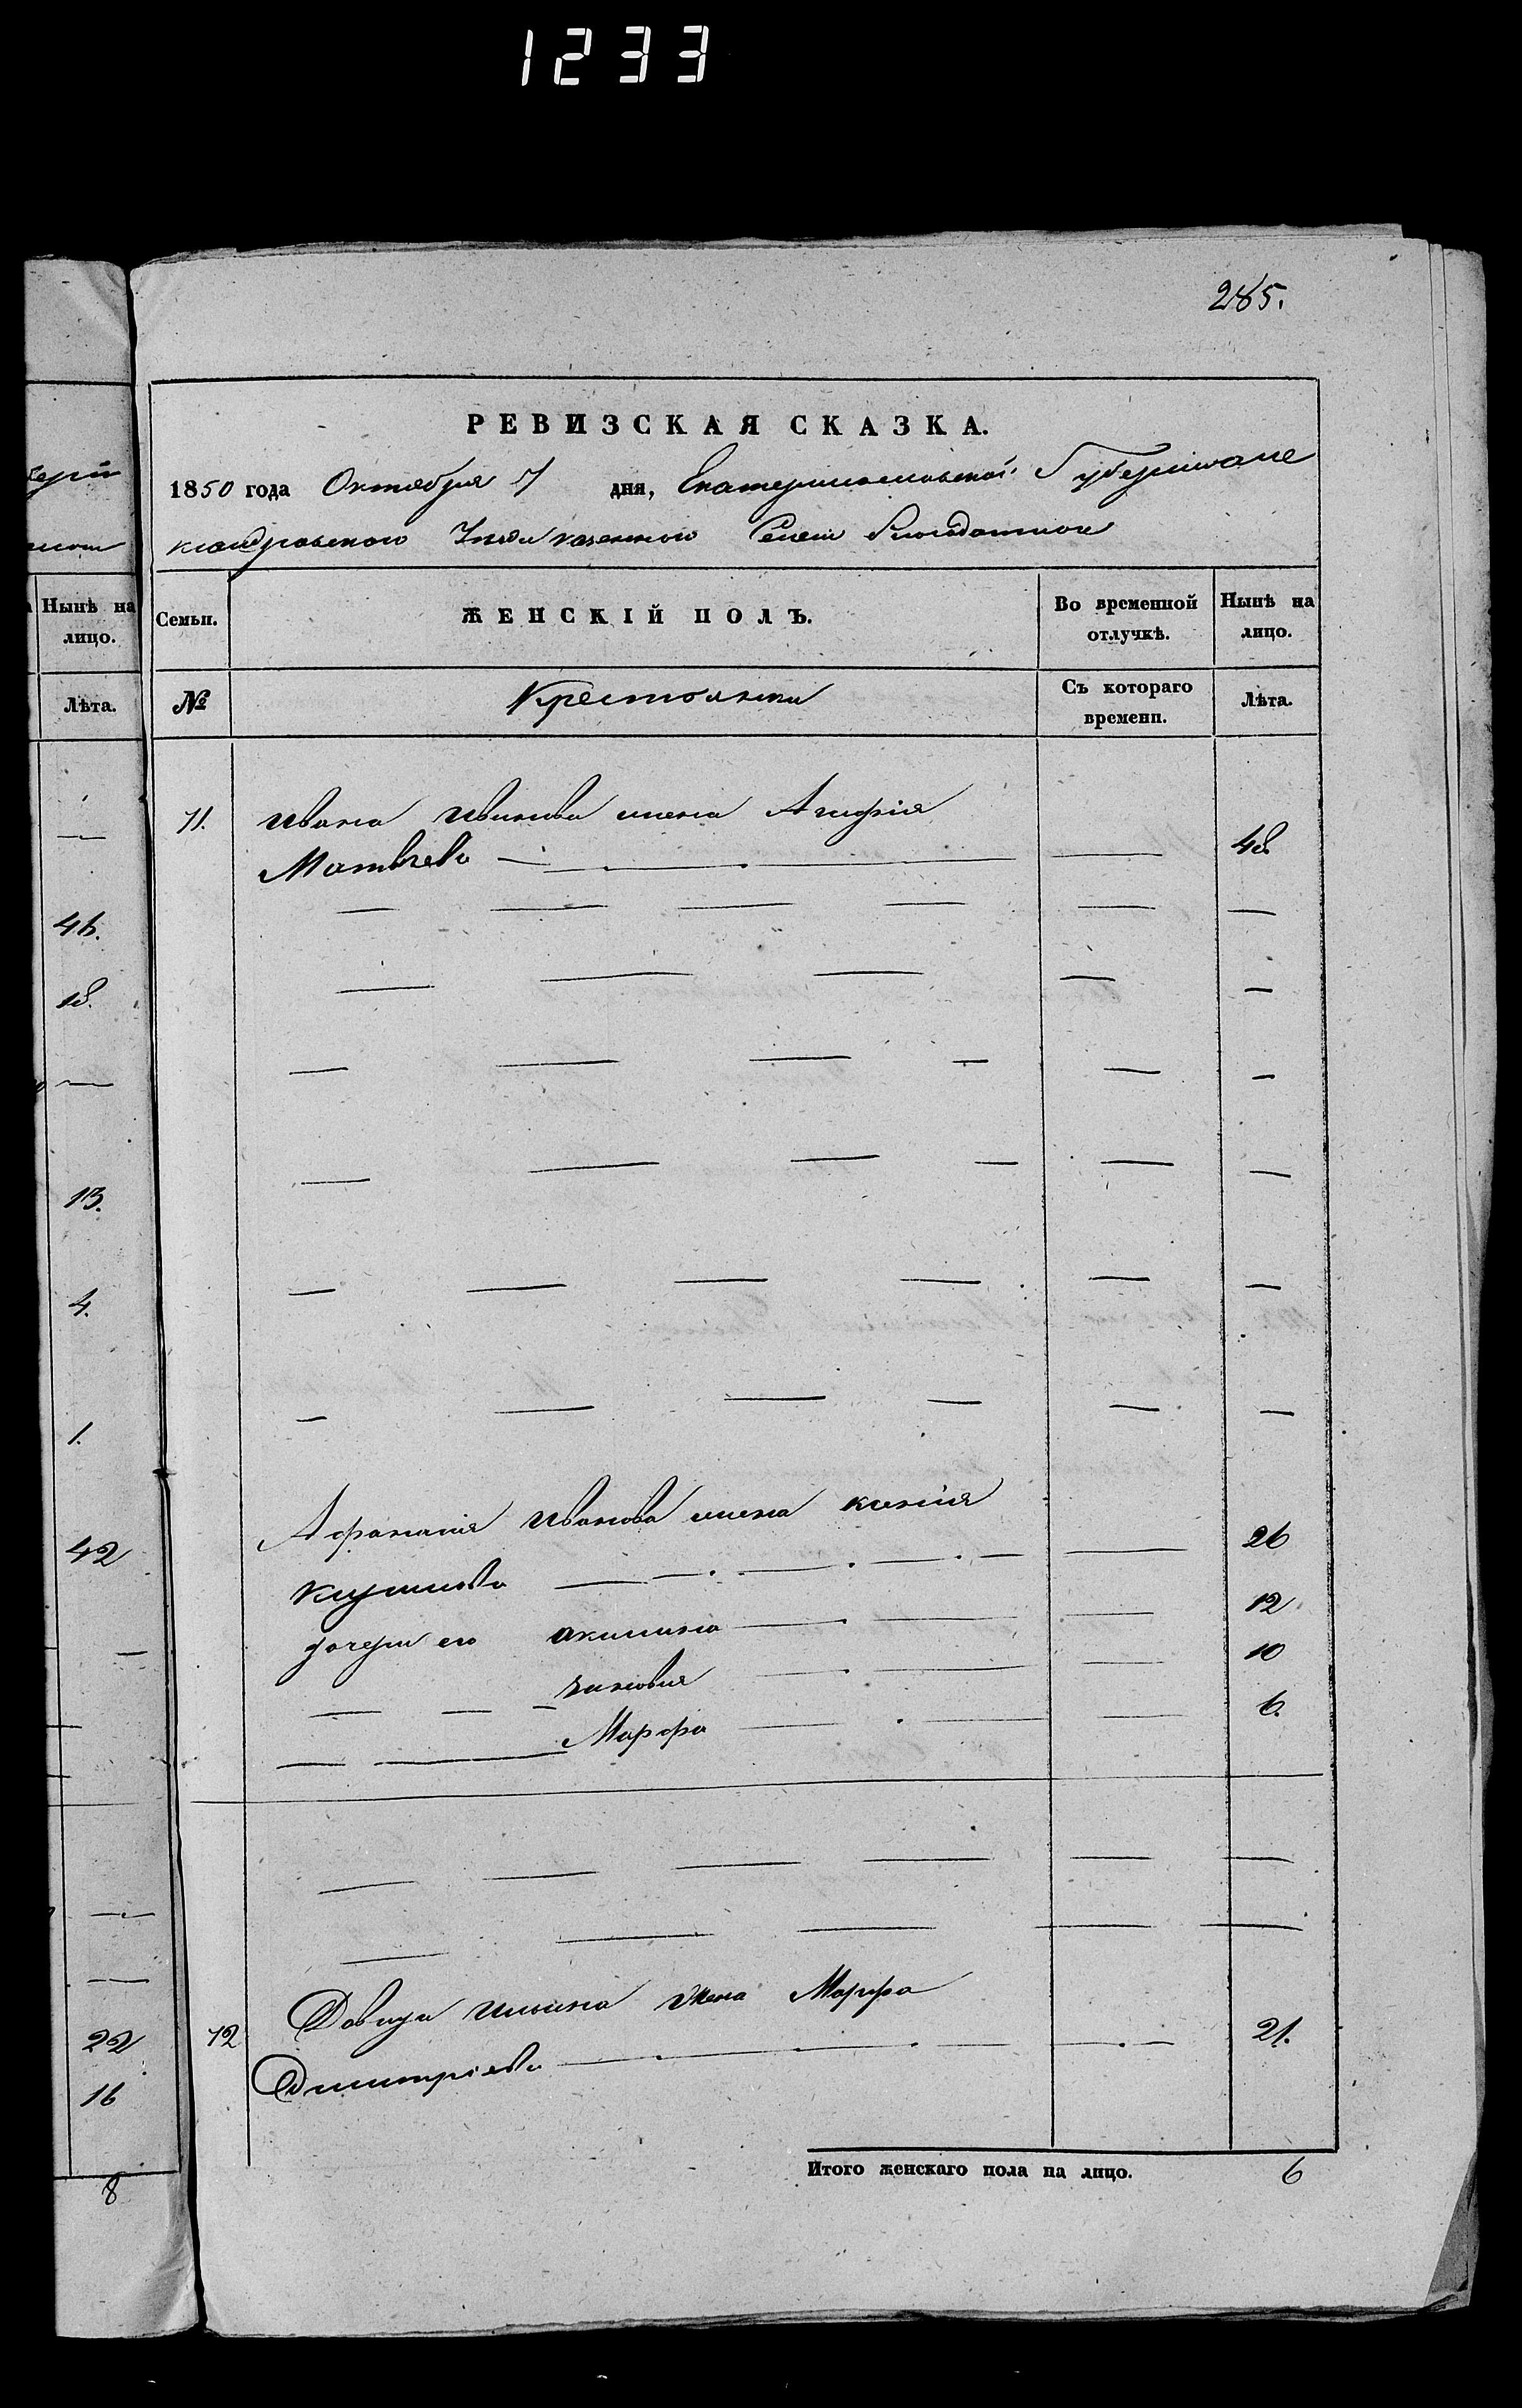 1233
285.
РЕВИЗСКАЯ СКАЗКА.
1850 года Октября 7 дня, Екатеринославской Губерніи Але
ксандровскаго Уезда казеннаго Селенія
Нынѣ на лицо.
Лѣта.
46.
18.
13.
4.
1.
42
22
16
8
Семьи. ЖЕНСКІЙ ПОЛЪ. Во временной отлучкѣ. Нынѣ на лицо.
№ Крестьянки Съ котораго времени. Лѣта.
71. Ивана Иванова жена
Матвѣева 48.
Афанасія Иванова жена Ксенія
26
дочери его Акилина 12
Зиновия 10
Марфа 6.
72 Давида Ильина жена Марфа
Дмитріева 21.
Итого женскаго пола на лицо. 6